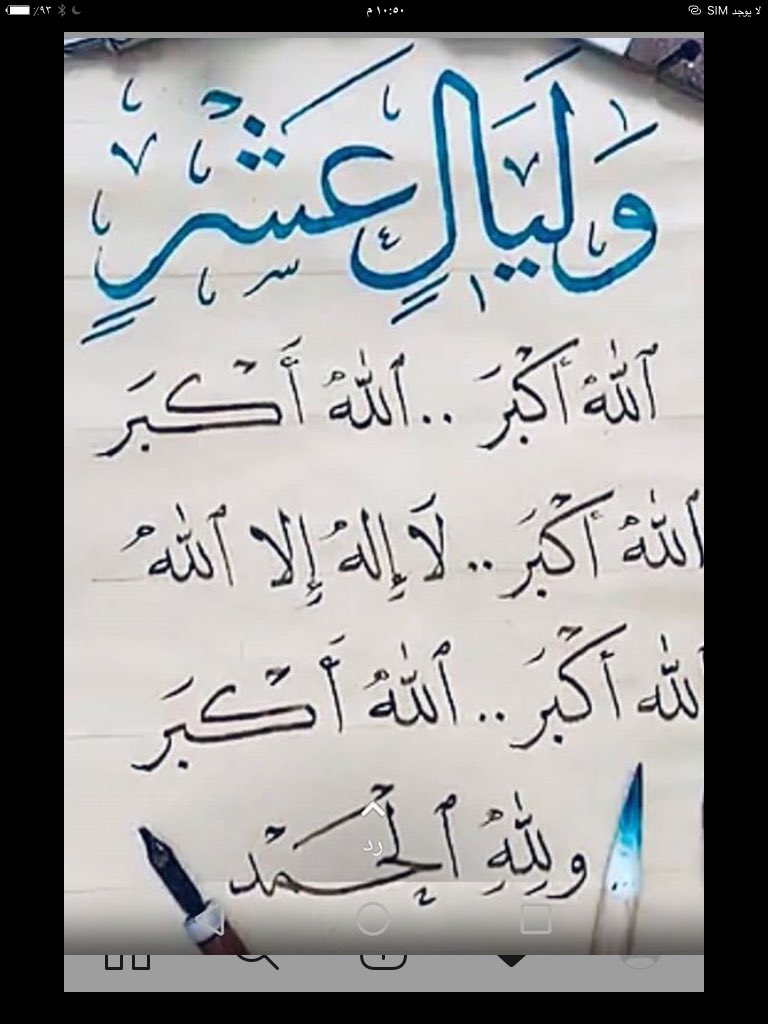 لا يوجد SIM ١٠:٥٠ م ٩٣٪
وَلَيَالٍ عَشْرٍ
ٱللّٰهُ أَكْبَرَ .. ٱللّٰهُ أَكْبَرَ
ٱللّٰهُ أَكْبَرَ .. لَا إِلهُ إِلا ٱللّٰهُ
للّٰه أَكْبَرَ .. ٱللّٰهُ أَكْبَرَ
ولِلّٰهِ ٱلْحَمْد
رد